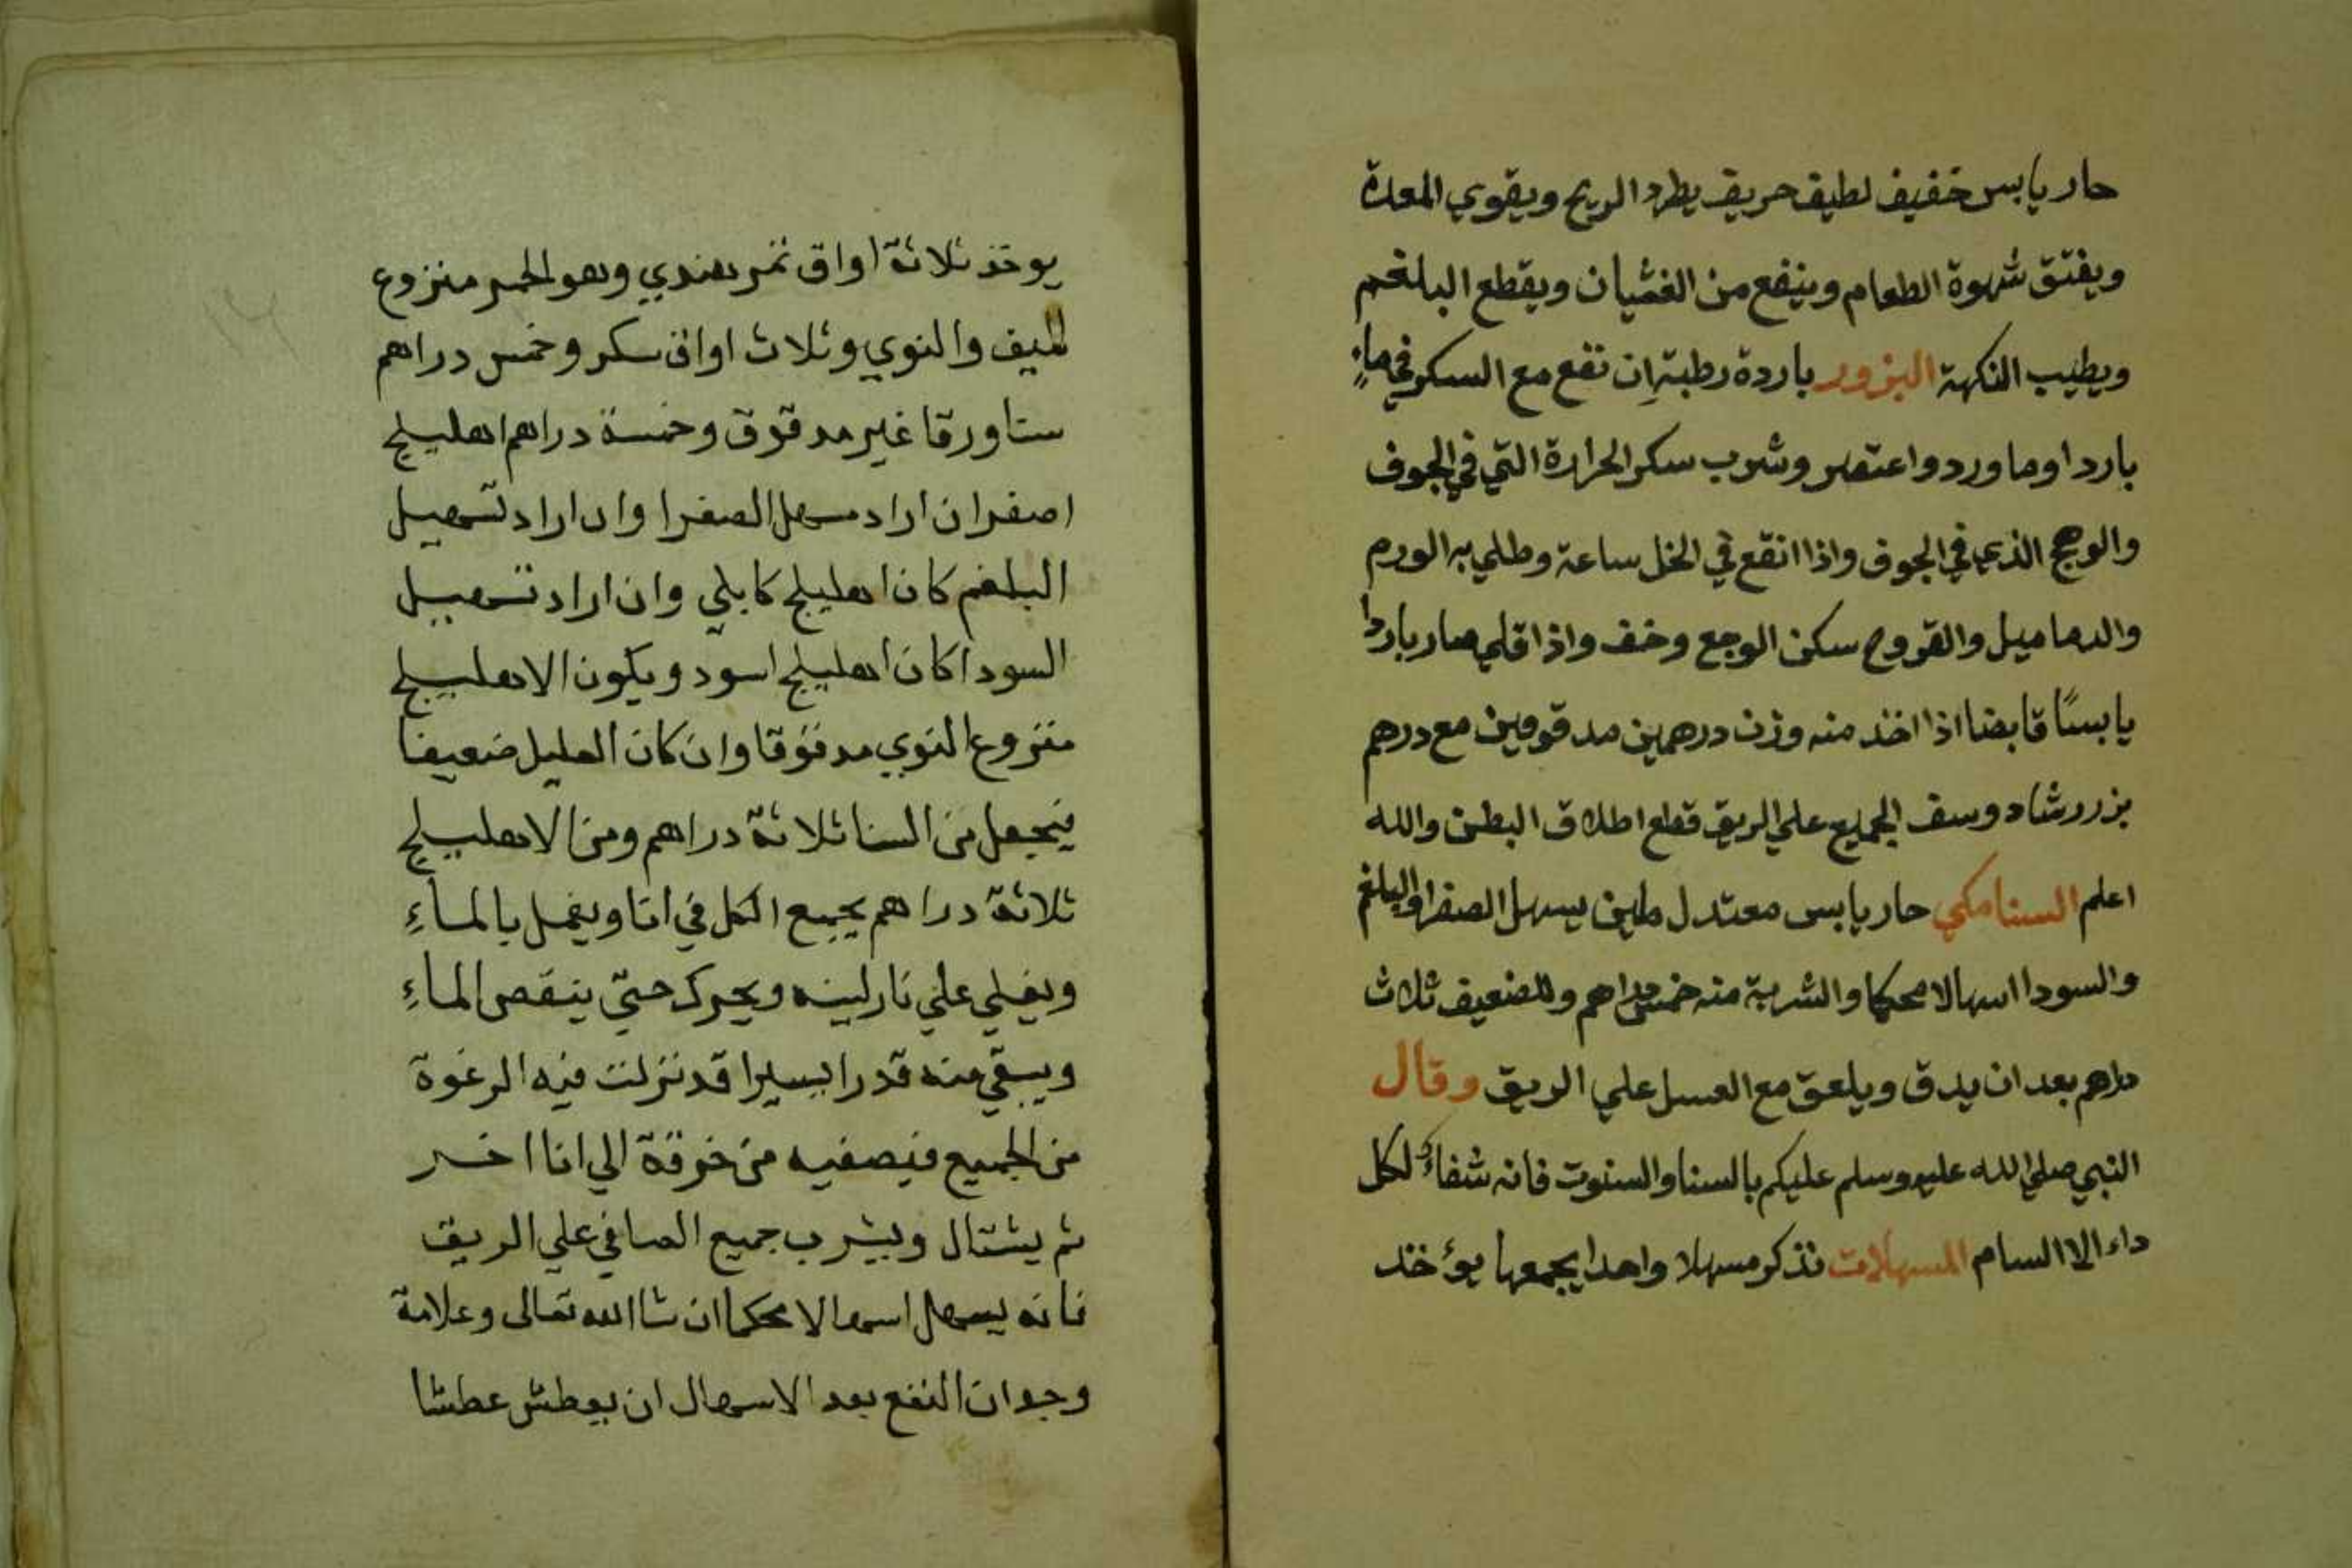 حار يابس خفيف لطيف حريف يطرد الريح ويقوي المعدة
ويفتق شهوة الطعام وينفع من الغثيان ويقطع البلغم
ويطيب النكهة البزور باردة رطبة إن نقع مع السكر في ماءٍ
بارد اوماورد واعتصر وشرب سكن الحرارة التي في الجوف
والوهج الذي في الجوف واذا انقع في الخل ساعة وطلي به الورم
والدماميل والقروح سكن الوجع وخف واذا قلي صار باردا
يابسًا قابضا اذا اخذ منه وزن درهمين مدقوقين مع درهم
بزر رشاد وسف الجميع علي الريق قطع اطلاق البطن والله
اعلم السنا مكي حار يابس معتدل ملين يسهل الصفرا والبلغم
والسودا اسهالا محكما والشربة منه خمس دراهم وللضعيف ثلاث
دراهم بعد ان يدق ويلعق مع العسل علي الريق وقال
النبي صلي الله عليه وسلم عليكم بالسنا والسنوت فانه شفاءٌ لكل
داء الا السام المسهلات نذكر مسهلا واحدا يجمعها يؤخذ
يوخذ ثلاثة اواق تمر هندي وهو الحمر منزوع
الليف والنوي وثلاث اواق سكر وخمس دراهم
سنا ورقا غير مدقوق وخمسة دراهم اهليلج
اصفر ان اراد مسهل الصفرا وان اراد تسهيل
البلغم كان اهليلج كابلي وان اراد تسهيل
السودا كان اهليلج اسود ويكون الاهليلج
منزوع النوي مدقوقا وان كان العليل ضعيفا
فيجعل من السنا ثلاثة دراهم ومن الاهليلج
ثلاثة دراهم يجمع الكل في انا ويغمل بالماءِ
ويغلي علي نار لينه ويحرك حتي ينقص الماءِ
ويبقي منه قدرا يسيرا قد نزلت فيه الرغوة
من الجميع فيصفيه من خرقة الي انا اخر
ثم يشتال ويشرب جميع الصافي علي الريق
فانه يسهل اسهالا محكما ان شا الله تعالى وعلامة
وجوان النفع بعد الاسهال ان يعطش عطشا